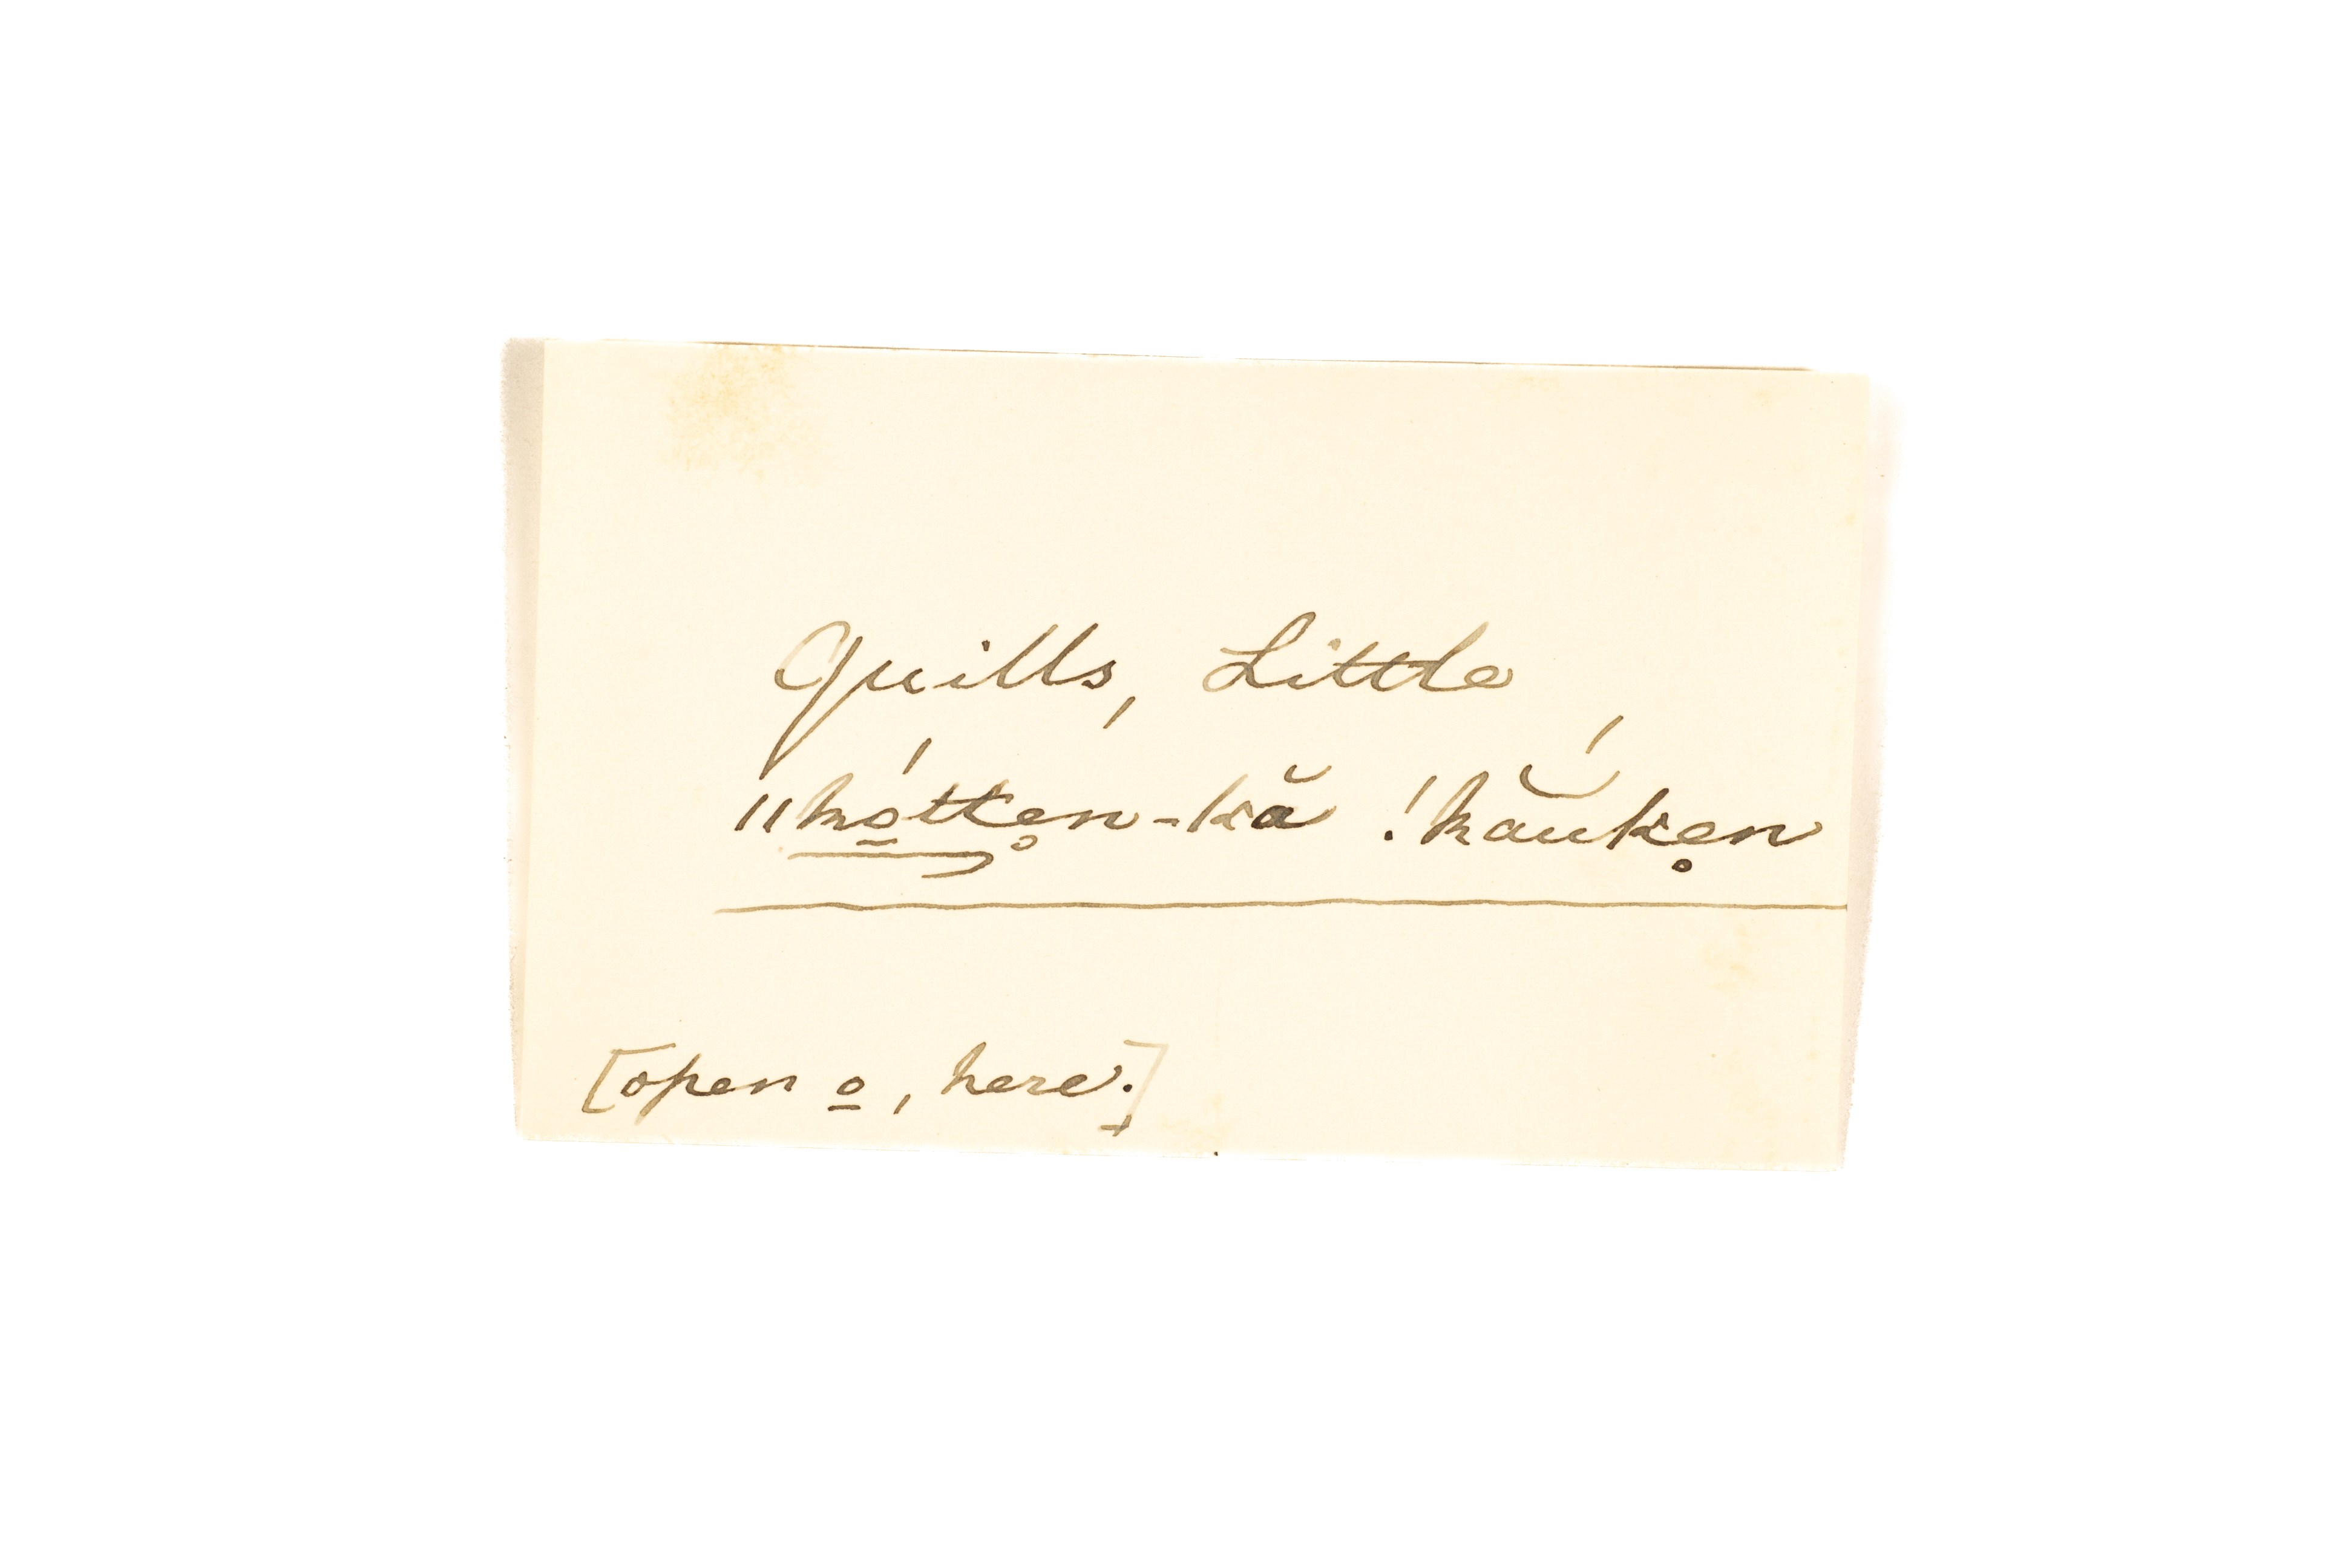 Quills, Little
ǁhó̱tte̥n-kă !hắuke̥n
[open o̱, here.]